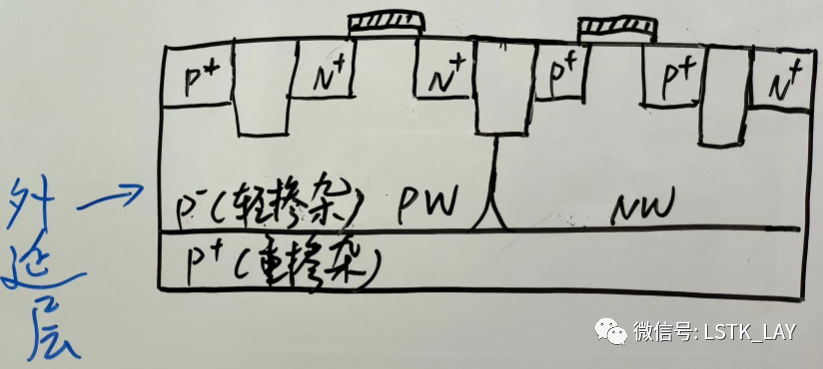 P+ N+ N+ P+ P+ N+
外延层
P-(轻掺杂) PW NW
P+(重掺杂)
微信号: LSTK_LAY